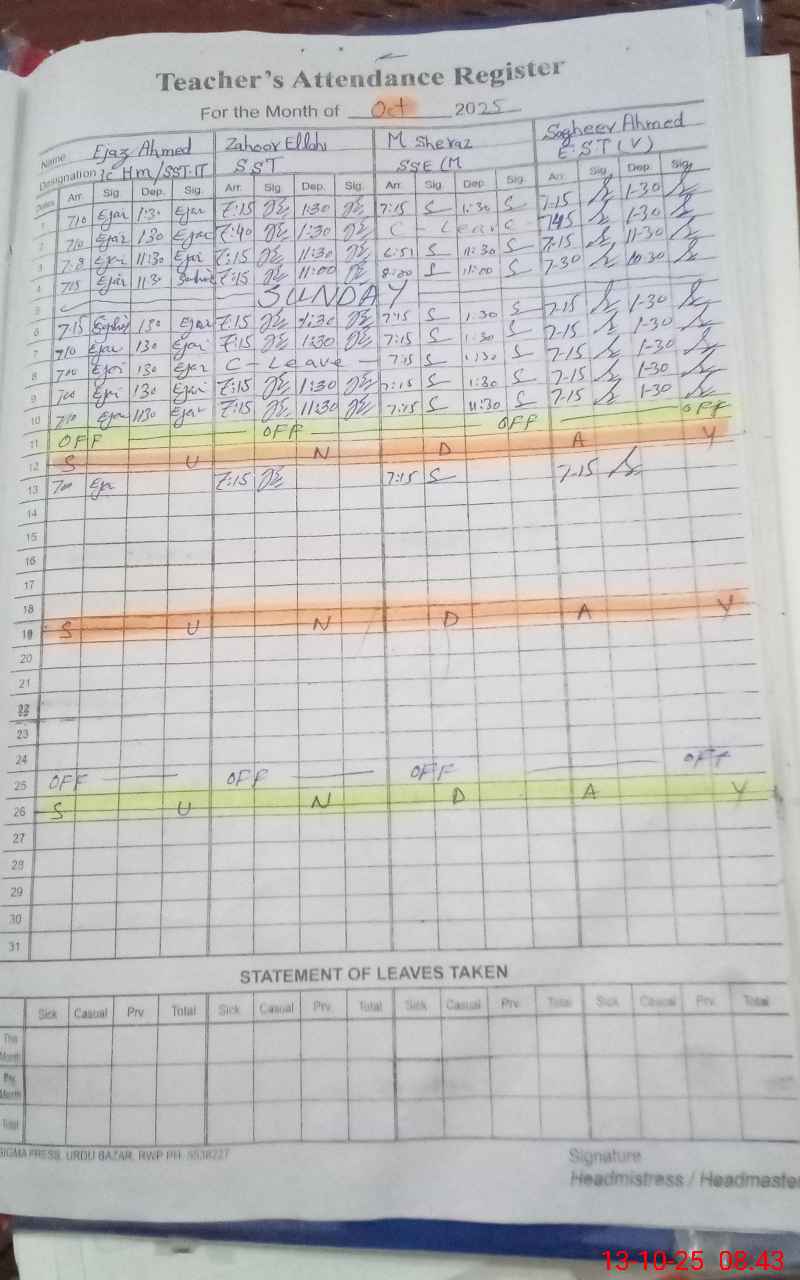 Teacher's Attendance Register
For the Month of Oct 2025
Name Ejaz Ahmed Zahoor Ellahi M Sheraz Sagheer Ahmed
Designation Ic Hm/SST-IT SST SSE (M E.ST(V)
Dates Arr. Sig. Dep. Sig. Arr. Sig. Dep. Sig. Arr. Sig. Dep. Sig. Arr. Sig. Dep. Sig.
1 710 Ejaz 1:30 Ejaz 7:15 1:30 7:15 S 1:30 S 7-15 1-30
2 710 Ejaz 130 Ejaz 7:40 1:30 C - Leave C - 745 1-30
3 7:8 Ejaz 11:30 Ejaz 7:15 11:30 6:51 S 11:30 S 7-15 11-30
4 715 Ejaz 11:3 7:15 11:00 8:00 S 11:00 S 7-30 10-30
5 SUNDAY
6 7:15 130 Ejaz 7:15 1:30 7:15 S 1:30 S 7-15 1-30
7 710 Ejaz 130 Ejaz 7:15 1:30 7:15 S 1:30 S 7-15 1-30
8 700 Ejaz 130 Ejaz C - Leave - 7:15 S 1:30 S 7-15 1-30
9 700 Ejaz 130 Ejaz 7:15 1:30 7:15 S 1:30 S 7-15 1-30
10 710 Ejaz 1130 Ejaz 7:15 11:30 7:15 S 11:30 S 7-15 1-30
11 OFF OFF OFF OFF
12 S U N D A Y
13 700 Eja 7:15 7:15 S 7-15
14
15
16
17
18
19 S U N D A Y
20
21
22
23
24
25 OFF OFF OFF OFF
26 S U N D A Y
27
28
29
30
31
STATEMENT OF LEAVES TAKEN
Sick Casual Prv. Total Sick Casual Prv. Total Sick Casual Prv. Total Sick Casual Prv. Total
This Month
Pre. Month
Total
SIGMA PRESS, URDU BAZAR, RWP PH: 5538227
Signature
Headmistress / Headmaste
13-10-25 08:43